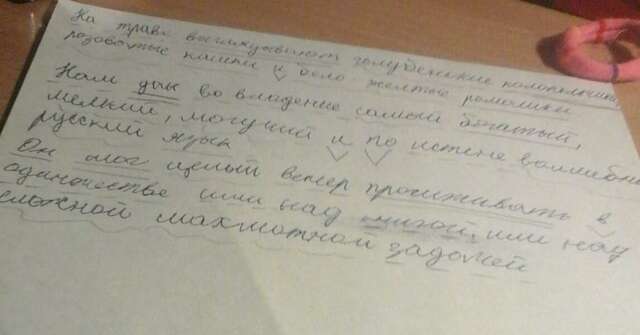 На траве выглядывают голубенькие колокольчики,
розоватые кашки и бело желтые ромашки
Нам дан во владение самый богатый,
меткий, могучий и по истене волшебный
русский язык
Он мог целый вечер просиживать в
одиночестве или над книгой, или над
сложной махматной задачей